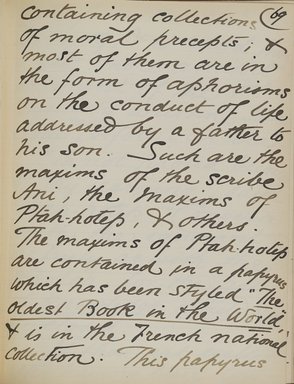 containing collections 69
of moral precepts; &
most of them are in
the form of aphorisms
on the conduct of life
addressed by a father to
his son. Such are the
maxims of the scribe
Ani, the maxims of
Ptah-hotep, & others.
The maxims of Ptah-hotep
are contained in a papyrus
which has been styled "The
oldest Book in the World",
& is in the French national
collection. This papyrus